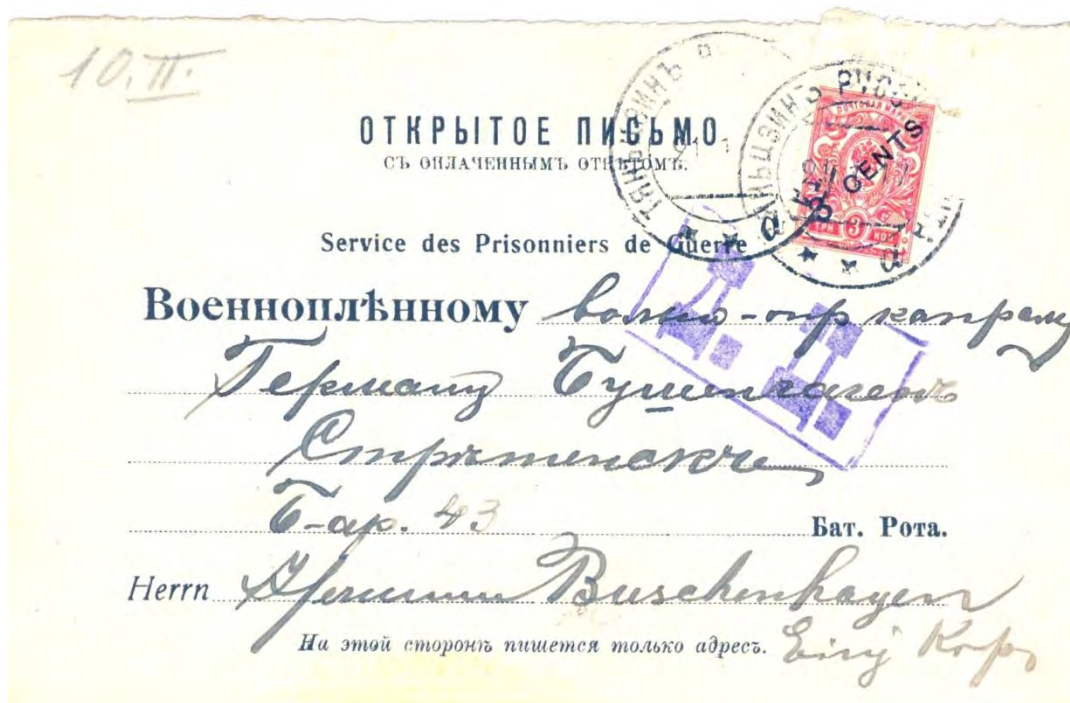 10.II.
ОТКРЫТОЕ ПИСЬМО
СЪ ОПЛАЧЕННЫМЪ ОТВѢТОМЪ.
ТЯНЬЦЗИНЪ
ТЯНЬЦЗИНЪ РУС
ПОЧТОВАЯ МАРКА
3 CENTS
ТРИ 3 КОП.
а
а
Service des Prisonniers de Guerre
Военноплѣнному вольно-опр капралу
Германц Бушенгагенъ
Стрѣтенскъ
Бар. 43 Бат. Рота.
Herrn Hermann Buschenhagen
На этой сторонѣ пишется только адресъ. Einj Korp